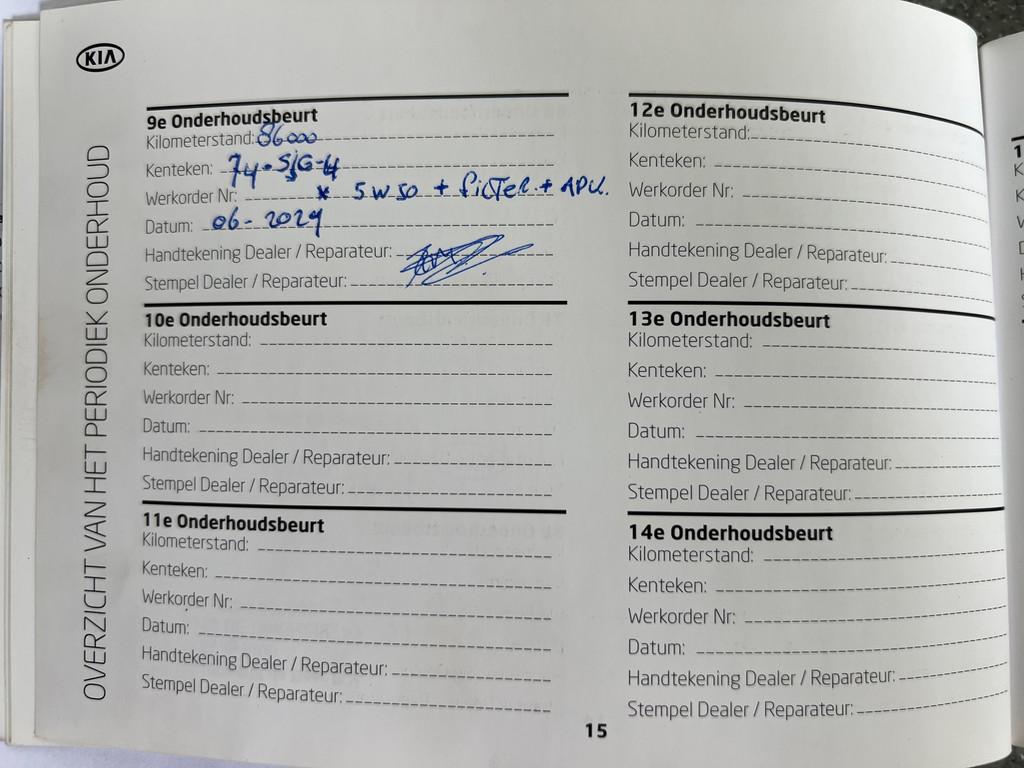 KIA
OVERZICHT VAN HET PERIODIEK ONDERHOUD
9e Onderhoudsbeurt
Kilometerstand: 86000
Kenteken: 74-SJG-4
Werkorder Nr: * 5W30 + filter + APK.
Datum: 06-2024
Handtekening Dealer / Reparateur:
Stempel Dealer / Reparateur:
10e Onderhoudsbeurt
Kilometerstand:
Kenteken:
Werkorder Nr:
Datum:
Handtekening Dealer / Reparateur:
Stempel Dealer / Reparateur:
11e Onderhoudsbeurt
Kilometerstand:
Kenteken:
Werkorder Nr:
Datum:
Handtekening Dealer / Reparateur:
Stempel Dealer / Reparateur:
12e Onderhoudsbeurt
Kilometerstand:
Kenteken:
Werkorder Nr:
Datum:
Handtekening Dealer / Reparateur:
Stempel Dealer / Reparateur:
13e Onderhoudsbeurt
Kilometerstand:
Kenteken:
Werkorder Nr:
Datum:
Handtekening Dealer / Reparateur:
Stempel Dealer / Reparateur:
14e Onderhoudsbeurt
Kilometerstand:
Kenteken:
Werkorder Nr:
Datum:
Handtekening Dealer / Reparateur:
Stempel Dealer / Reparateur:
15